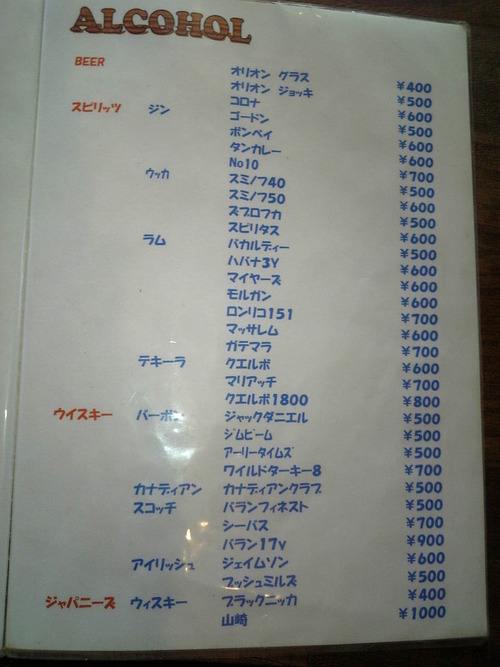 ALCOHOL
BEER
オリオン グラス ¥400
オリオン ジョッキ ¥500
コロナ ¥600
スピリッツ ジン ゴードン ¥500
ボンベイ ¥600
タンカレー ¥600
No10 ¥700
ウッカ スミノフ40 ¥500
スミノフ50 ¥600
ズブロフカ ¥500
スピリタス ¥600
ラム バカルディー ¥500
ハバナ3Y ¥600
マイヤーズ ¥600
モルガン ¥600
ロンリコ151 ¥700
マッサレム ¥600
ガテマラ ¥700
テキーラ クエルボ ¥600
マリアッチ ¥700
クエルボ1800 ¥800
ウイスキー バーボン ジャックダニエル ¥500
ジムビーム ¥500
アーリータイムズ ¥500
ワイルドターキー8 ¥700
カナディアン カナディアンクラブ ¥500
スコッチ バランフィネスト ¥500
シーバス ¥700
バラン17y ¥900
アイリッシュ ジェイムソン ¥600
ブッシュミルズ ¥500
ジャパニーズ ウィスキー ブラックニッカ ¥400
山崎 ¥1000